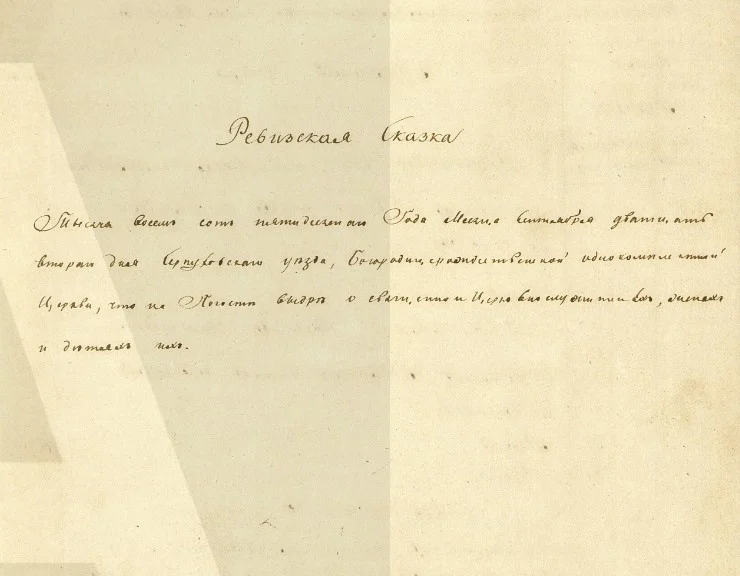 Ревизская Сказка
Тысяча восемь сотъ пятидесятаго Года Месяца Сентября дватцать
втораго дня Серпуховскаго уѣзда, Богородицерождественской однокомплектной
Церкви, что на Погостѣ Выдрѣ о священно и Церковнослужителяхъ, женахъ
и дѣтяхъ ихъ.